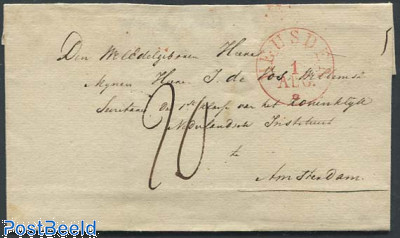 Den WelEdelgeboren Heere
Mijnen Heere J. de Vos Willemsz
Secretaris der 1ste Klasse van het Koninklijk
Nederlandsch Instituut
te
Amsterdam
HEUSDEN
1
AUG.
20
PostBeeld